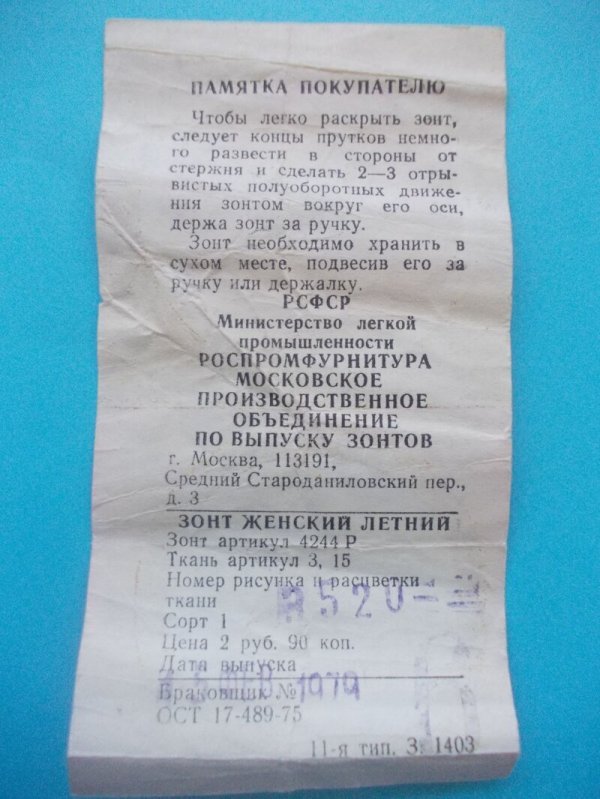 ПАМЯТКА ПОКУПАТЕЛЮ
Чтобы легко раскрыть зонт,
следует концы прутков немно-
го развести в стороны от
стержня и сделать 2—3 отры-
вистых полуоборотных движе-
ния зонтом вокруг его оси,
держа зонт за ручку.
Зонт необходимо хранить в
сухом месте, подвесив его за
ручку или держалку.
РСФСР
Министерство легкой
промышленности
РОСПРОМФУРНИТУРА
МОСКОВСКОЕ
ПРОИЗВОДСТВЕННОЕ
ОБЪЕДИНЕНИЕ
ПО ВЫПУСКУ ЗОНТОВ
г. Москва, 113191,
Средний Староданиловский пер.,
д. 3
ЗОНТ ЖЕНСКИЙ ЛЕТНИЙ
Зонт артикул 4244 Р
Ткань артикул 3, 15
Номер рисунка и расцветки
ткани
520-
Сорт 1
Цена 2 руб. 90 коп.
Дата выпуска
ФЕВ 1979
Браковщик №
ОСТ 17-489-75
11-я тип. З. 1403